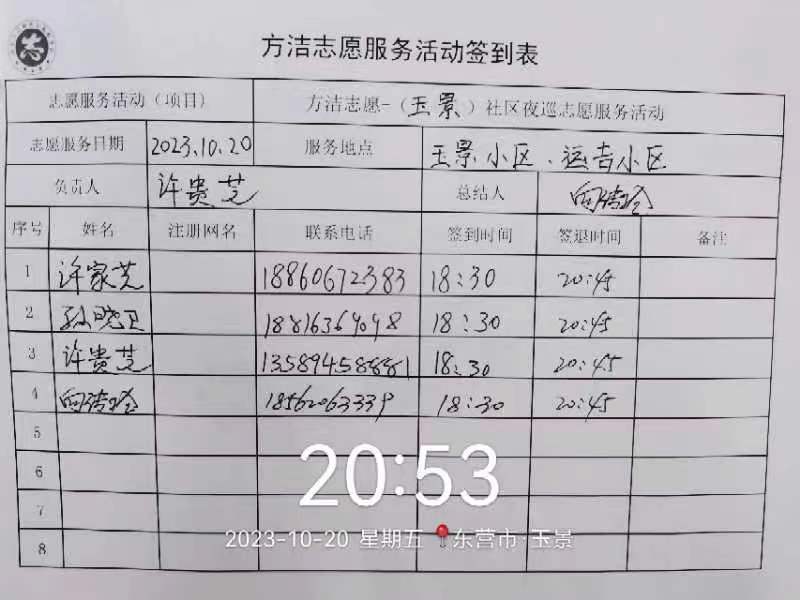 方洁志愿服务活动签到表
志愿服务活动（项目） 方洁志愿-（玉景）社区夜巡志愿服务活动
志愿服务日期 2023.10.20 服务地点 玉景小区、运吉小区
负责人 许贵芝 总结人
序号 姓名 注册网名 联系电话 签到时间 签退时间 备注
1 许家芝 18860672383 18:30 20:45
2 孙晓卫 18816369098 18:30 20:45
3 许贵芝 13589458881 18:30 20:45
4 18562063339 18:30 20:45
5
6
7
8
20:53
2023-10-20 星期五 东营市·玉景